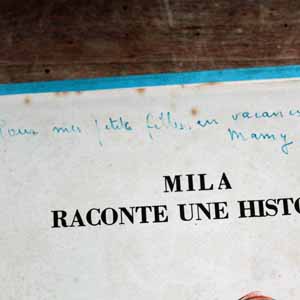 Pour mes petite filles, en vacances
Mamy
MILA
RACONTE UNE HISTO